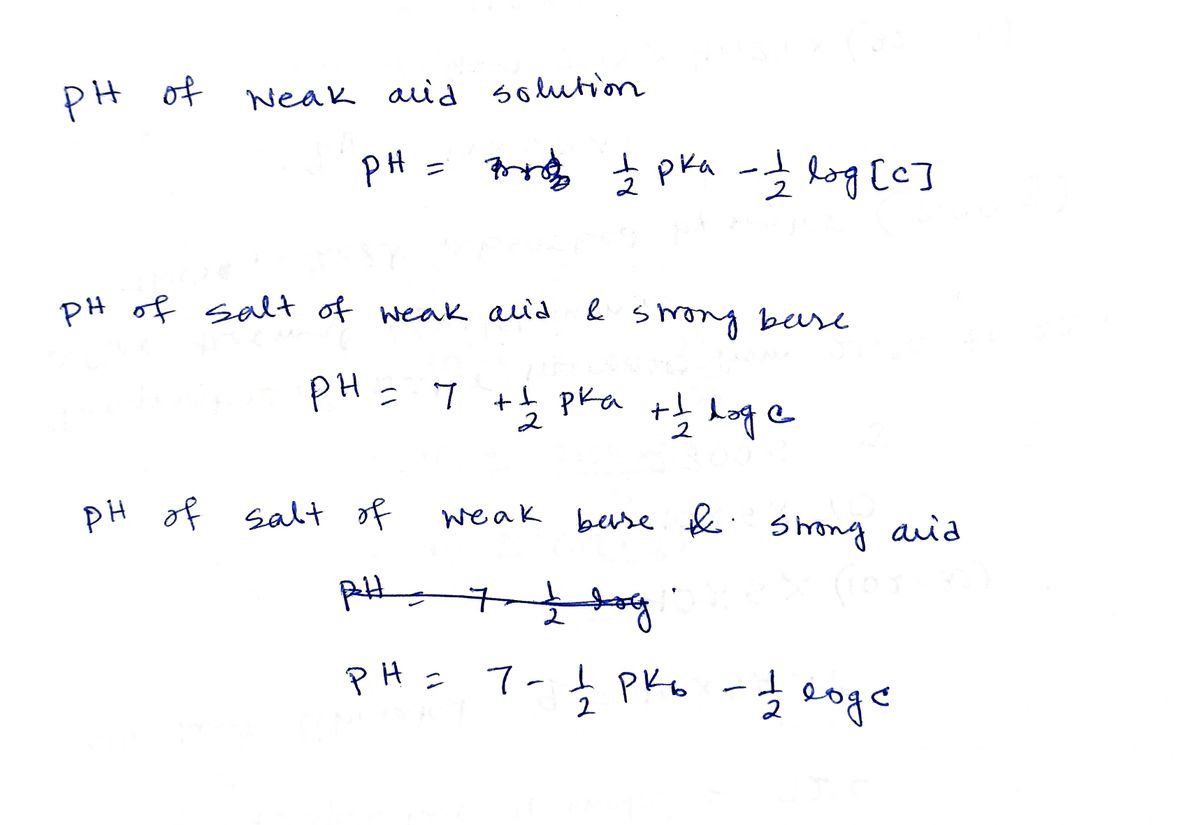 pH of weak acid solution
pH = ½ pKa - ½ log [c]
pH of salt of weak acid & strong base
pH = 7 + ½ pKa + ½ log c
pH of salt of weak base & strong acid
pH = 7 - ½ log
pH = 7 - ½ pKb - ½ log c